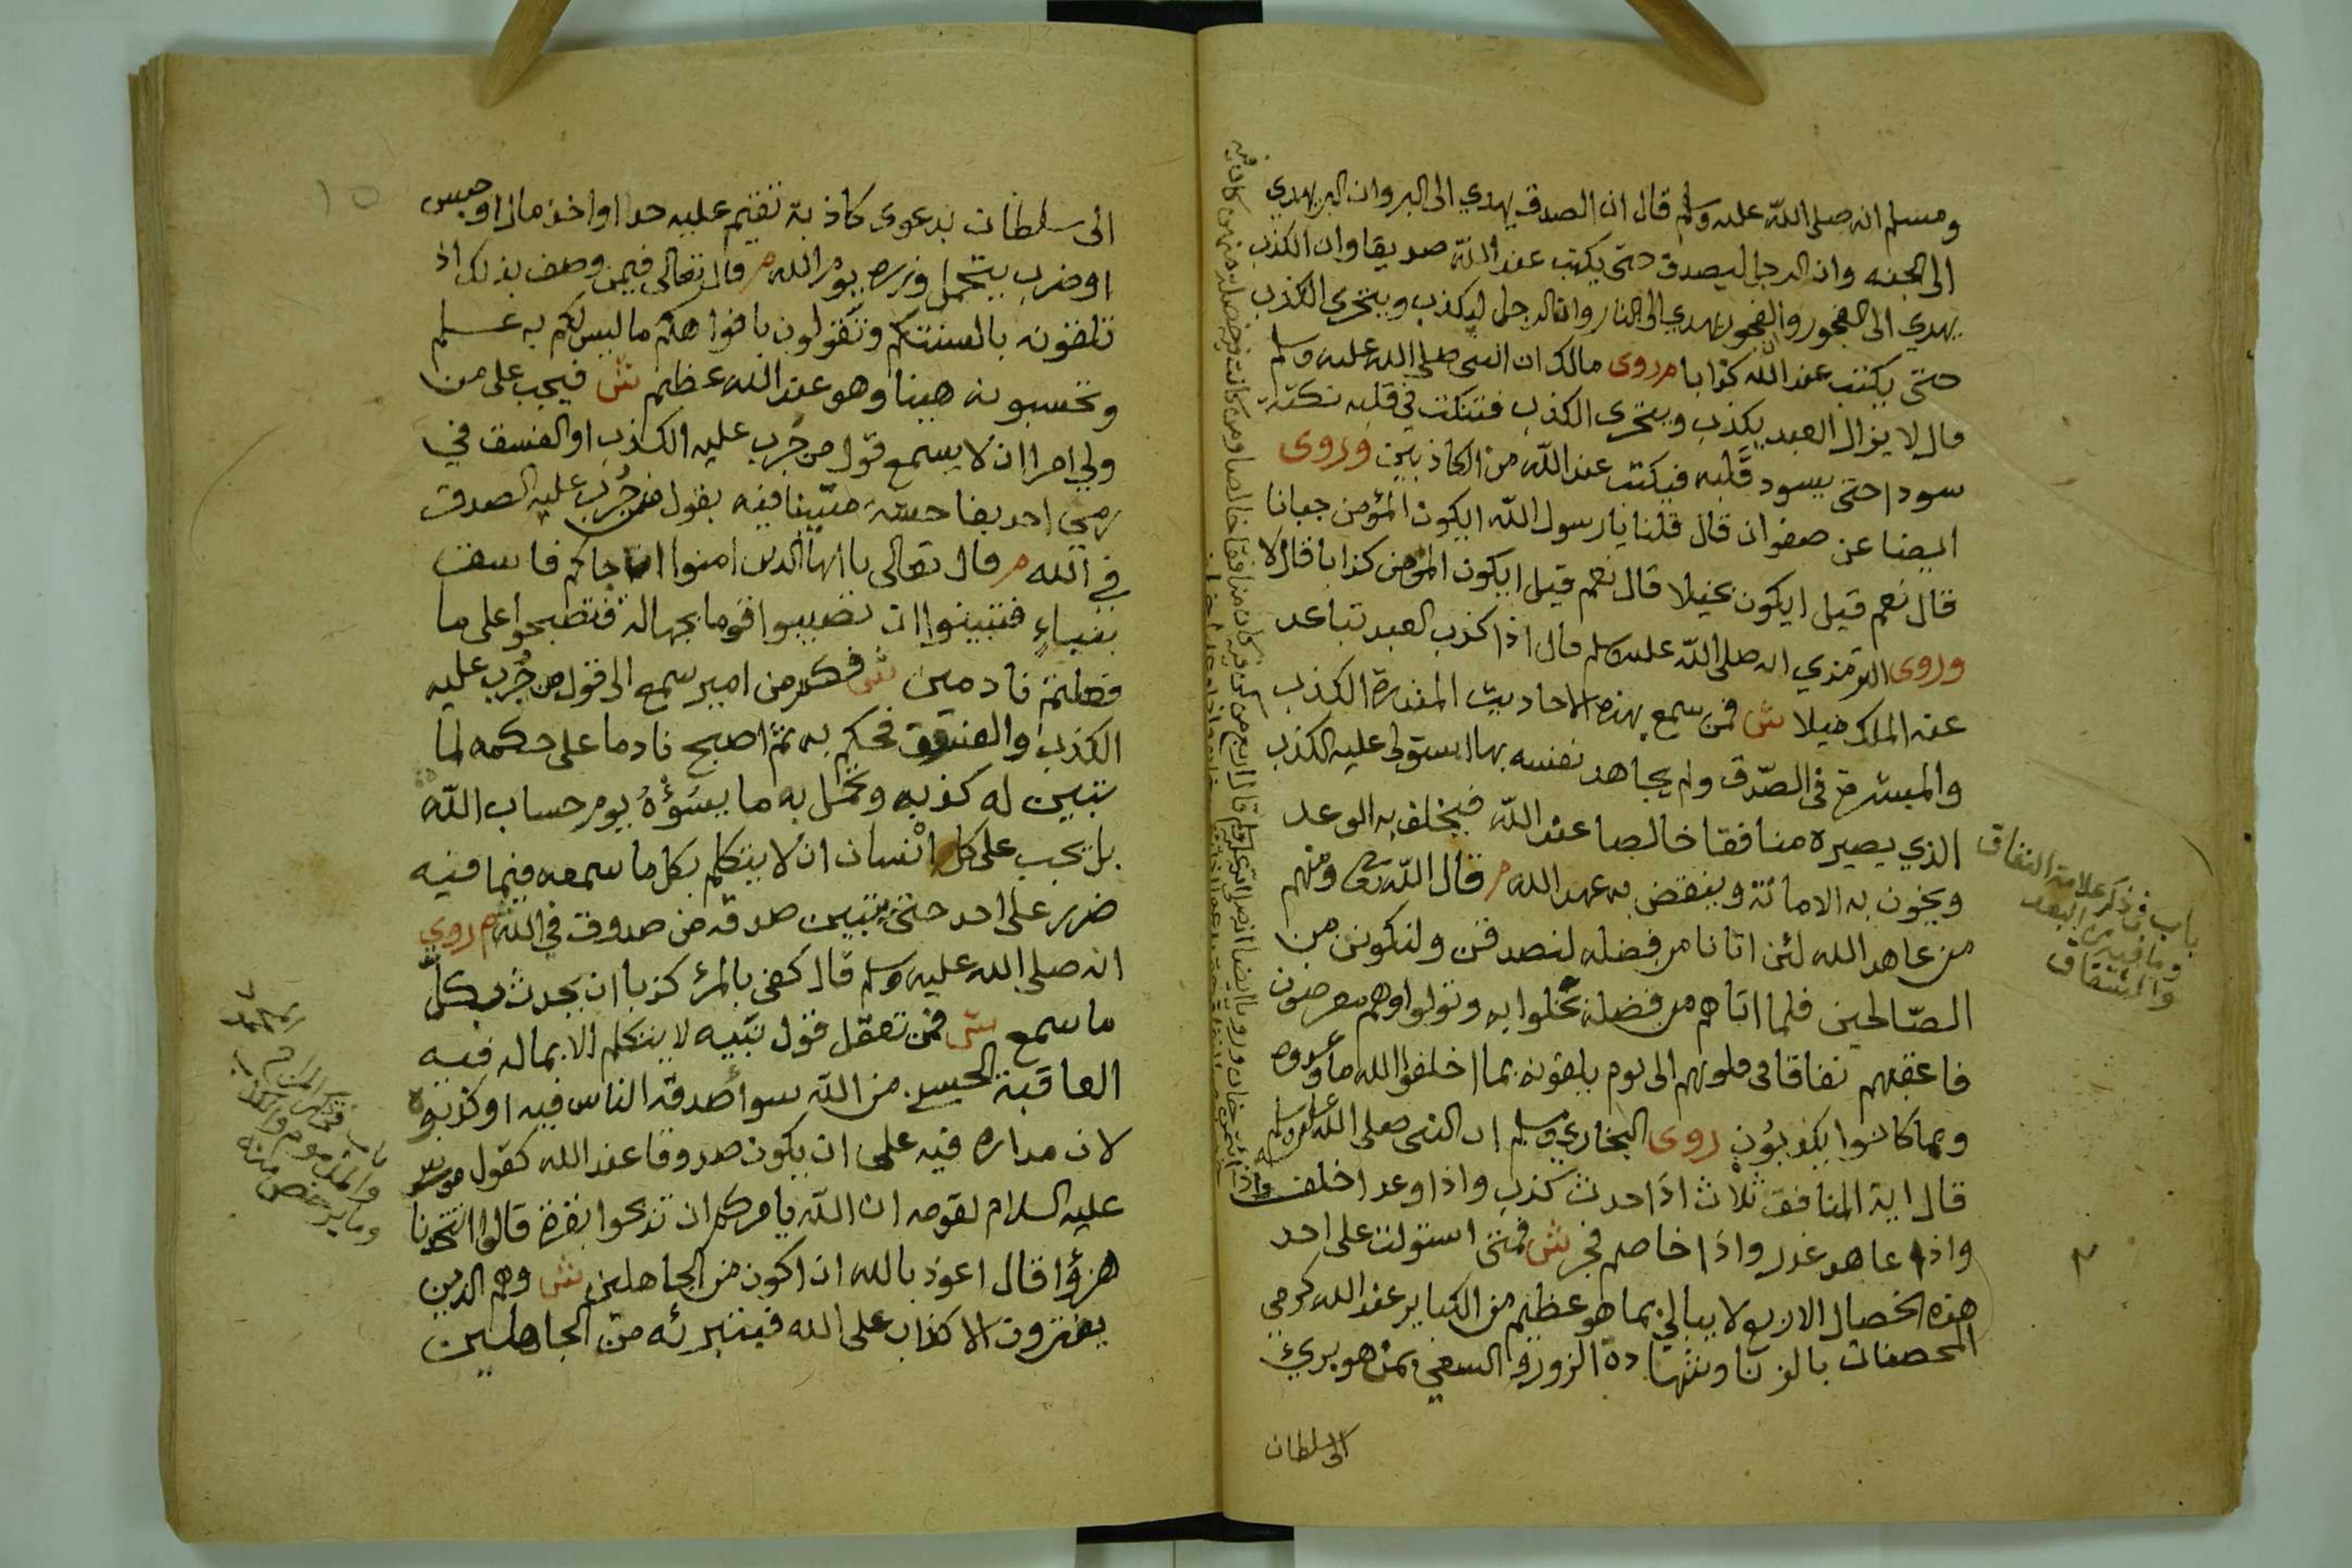 ومسلم انه صلى الله عليه وسلم قال ان الصدق يهدي الى البر وان البر يهدي
الى الجنه وان الرجل ليصدق حتى يكتب عند الله صديقا وان الكذب
يهدي الى الفجور والفجور يهدي الى النار وان الرجل ليكذب ويتحرى الكذب
حتى يكتب عند الله كذابا م روى مالك ان النبي صلى الله عليه وسلم
قال لا يزال العبد يكذب ويتحرى الكذب فتنكت في قلبه نكتة
سودا حتى يسود قلبه فيكتب عند الله من الكاذبين وروى
ايضا عن صفوان قال قلنا يا رسول الله ايكون المؤمن جبانا
قال نعم قيل ايكون بخيلا قال نعم قيل ايكون المؤمن كذابا قال لا
وروى الترمذي انه صلى الله عليه وسلم قال اذا كذب العبد تباعد
عنه الملك ميلا ش فمن سمع بهذه الاحاديث المنذرة الكذب
والمبشرة في الصدق ولم يجاهد نفسه بها استولى عليه الكذب
الذي يصيره منافقا خالصا عند الله فيخلف به الوعد
ويخون به الامانة وينقض به عهد الله م قال الله تعالى ومنهم
من عاهد الله لئن اتانا من فضله لنصدقن ولنكونن من
الصالحين فلما اتاهم من فضله بخلوا به وتولوا وهم معرضون
فاعقبهم نفاقا في قلوبهم الى يوم يلقونه بما اخلفوا الله ما وعدوه
وبما كانوا يكذبون روى البخاري ومسلم ان النبي صلى الله عليه وسلم
قال اية المنافق ثلاث اذا حدث كذب واذا وعد اخلف
واذا عاهد غدر واذا خاصم فجر ش فمتى استولت على احد
هذه الخصال الاربع لا يبالي بما هو عظيم من الكباير عند الله كرمي
المحصنات بالزنا وشهادة الزور والسعي بمن هو بريء
الى سلطان
باب في ذكر علامة النفاق
وما فيه من البعد
والشقاق
واذا ائتمن خان
الى سلطان بدعوى كاذبة تقيم عليه حدا او اخذ مال او حبس
او ضرب يتحمل وزره يوم الله م قال تعالى فيمن وصف بذلك اذ
تلقونه بالسنتكم وتقولون بافواهكم ما ليس لكم به علم
وتحسبونه هينا وهو عند الله عظيم ش فيجب على من
ولي امرا ان لا يسمع قول من جرب عليه الكذب او الفسق في
رمي احد بفاحشة متبينا فيه بقول من جرب عليه الصدق
في الله م قال تعالى يا ايها الذين امنوا ان جاكم فاسق
بنباء فتبينوا ان تصيبوا قوما بجهالة فتصبحوا على ما
فعلتم نادمين ش فكم من امير سمع الى قول من جرب عليه
الكذب والفسق فحكم به ثم اصبح نادما على حكمه لما
تبين له كذبه وتحمل به ما يسوؤه يوم حساب الله
بل يجب على كل انسان ان لا يتكلم بكل ما سمعه فيما فيه
ضرر على احد حتى يتبين صدقه من صدوق في الله م روي
انه صلى الله عليه وسلم قال كفى بالمرء كذبا ان يحدث بكل
ما سمع ش فمن تعقل قول نبيه لا يتكلم الا بما له فيه
العاقبة الحسنى من الله سوا صدقه الناس فيه او كذبوه
لان مداره فيه على ان يكون صدوقا عند الله كقول موسى
عليه السلام لقومه ان الله يامركم ان تذبحوا بقرة قالوا اتتخذنا
هزؤا قال اعوذ بالله ان اكون من الجاهلين ش وهم الذين
يفترون الاكذاب على الله فيتبرئه من الجاهلين
باب في ذكر المزاح
والمذموم والكذب
وما يرخص منه